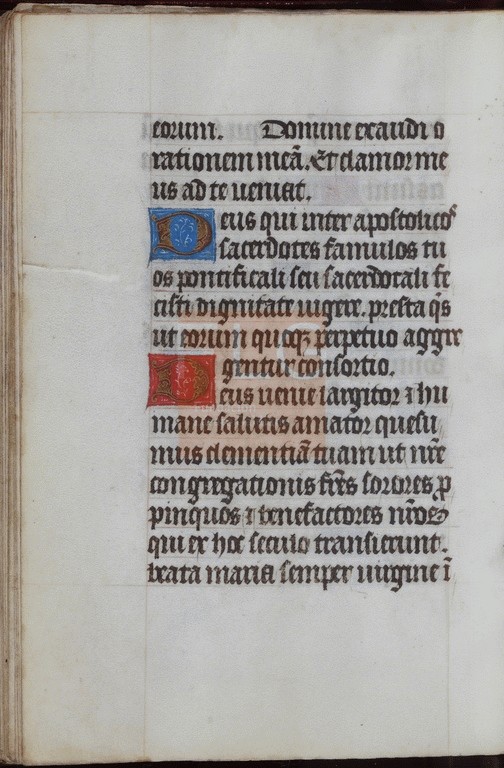 eorum. Domine exaudi o
rationem meā. Et clamor me
us ad te ueniat.
Deus qui inter apostolicos
sacerdotes famulos tu
os pontificali seu sacerdotali fe
cisti dignitate uigere. presta qs̄
ut eorum quoqȝ perpetuo aggre
gentur consortio.
Deus uenie largitor ⁊ hu
mane salutis amator quesu
mus clementiā tuam ut nr̄e
congregationis fr̄es sorores ꝓ
pinquos ⁊ benefactores nr̄os
qui ex hoc seculo transierunt.
beata maria semper uirgine ī